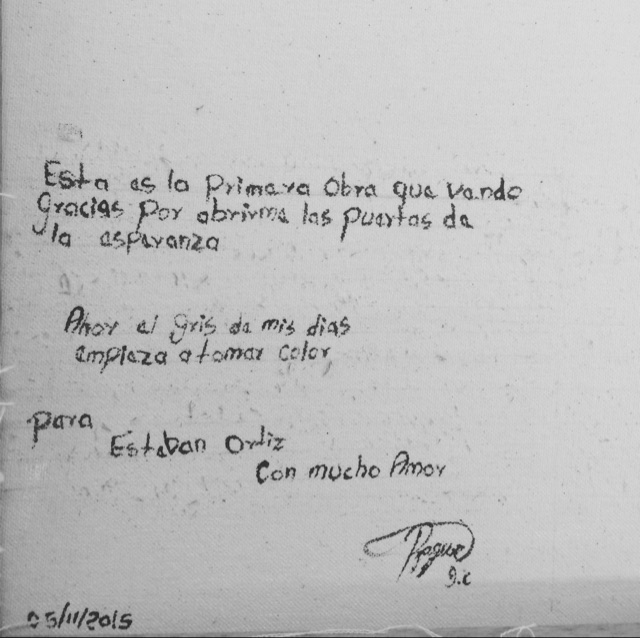 Esta es la primera obra que vendo
Gracias por abrirme las puertas de
la esperanza
Ahor el gris de mis dias
empieza a tomar color
para
Esteban Ortiz
Con mucho Amor
05/11/2015